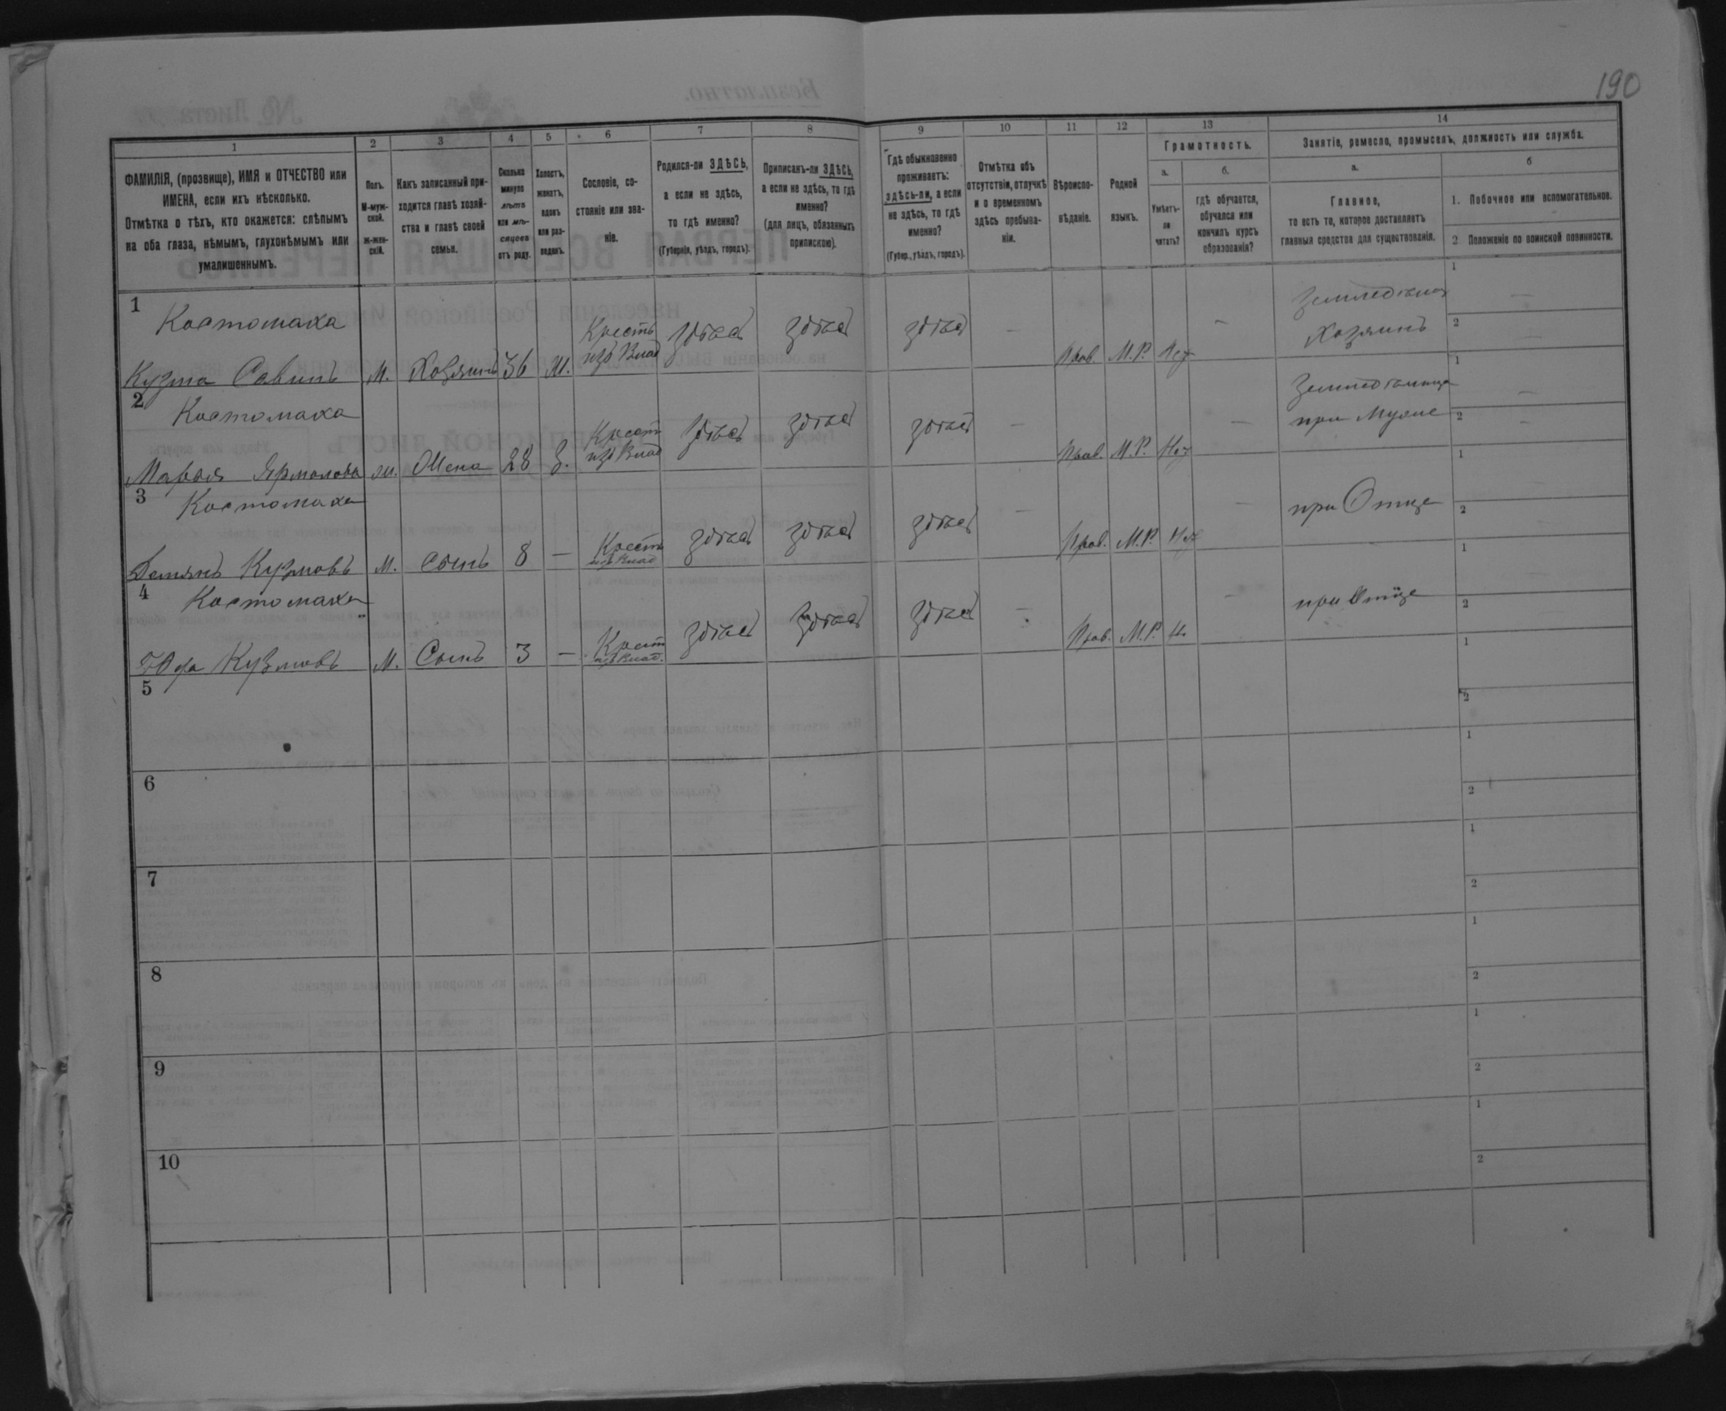 190
1
2
3
4
5
6
7
8
9
10
11
12
13
14
ФАМИЛІЯ, (прозвище), ИМЯ и ОТЧЕСТВО или
ИМЕНА, если ихъ нѣсколько.
Отмѣтка о тѣхъ, кто окажется: слѣпымъ
на оба глаза, нѣмымъ, глухонѣмымъ или
умалишеннымъ.
Полъ.
М-муж-
ской.
ж-жен-
скій.
Какъ записанный при-
ходится главѣ хозяй-
ства и главѣ своей
семьи.
Сколько
минуло
лѣтъ
или мѣ-
сяцевъ
отъ роду.
Холостъ,
женатъ,
вдовъ
или раз-
веденъ.
Сословіе, со-
стояніе или зва-
ніе.
Родился-ли ЗДѢСЬ,
а если не здѣсь,
то гдѣ именно?
(Губернія, уѣздъ, городъ).
Приписанъ-ли ЗДѢСЬ,
а если не здѣсь, то гдѣ
именно?
(для лицъ, обязанныхъ
припискою).
Гдѣ обыкновенно
проживаетъ:
здѣсь-ли, а если
не здѣсь, то гдѣ
именно?
(Губер., уѣздъ, городъ).
Отмѣтка объ
отсутствіи, отлучкѣ
и о временномъ
здѣсь пребыва-
ніи.
Вѣроиспо-
вѣданіе.
Родной
языкъ.
Грамотность.
а.
Умѣетъ-
ли
читать?
б.
гдѣ обучается,
обучался или
кончилъ курсъ
образованія?
Занятіе, ремесло, промыселъ, должность или служба.
а.
Главное,
то есть то, которое доставляетъ
главныя средства для существованія.
б
1. Побочное или вспомогательное.
2 Положеніе по воинской повинности.
1 Костомаха
Кузма Савинъ м. Хозяинъ 36 ж. Крестъ изъ Влад здѣсь здѣсь здѣсь — Прав. М.Р. Нет — Земледѣлец Хозяинъ 1 — 2 —
2 Костомаха
Марья Ярмолова ж. Жена 28 з. Крест изъ Влад здѣсь здѣсь здѣсь — Прав. М.Р. Нет — при Муже 1 — 2 —
3 Костомаха
Демянъ Кузмовъ м. сынъ 8 — Крест изъ Влад здѣсь здѣсь здѣсь — Прав. М.Р. Нет — при Отце 1 2
4 Костомаха
Кузмовъ м. Сынъ 3 — Крест изъ Влад. здѣсь здѣсь здѣсь — Прав. М.Р. Н. — при Отце 1 2
5 1 2
6 1 2
7 1 2
8 1 2
9 1 2
10 1 2